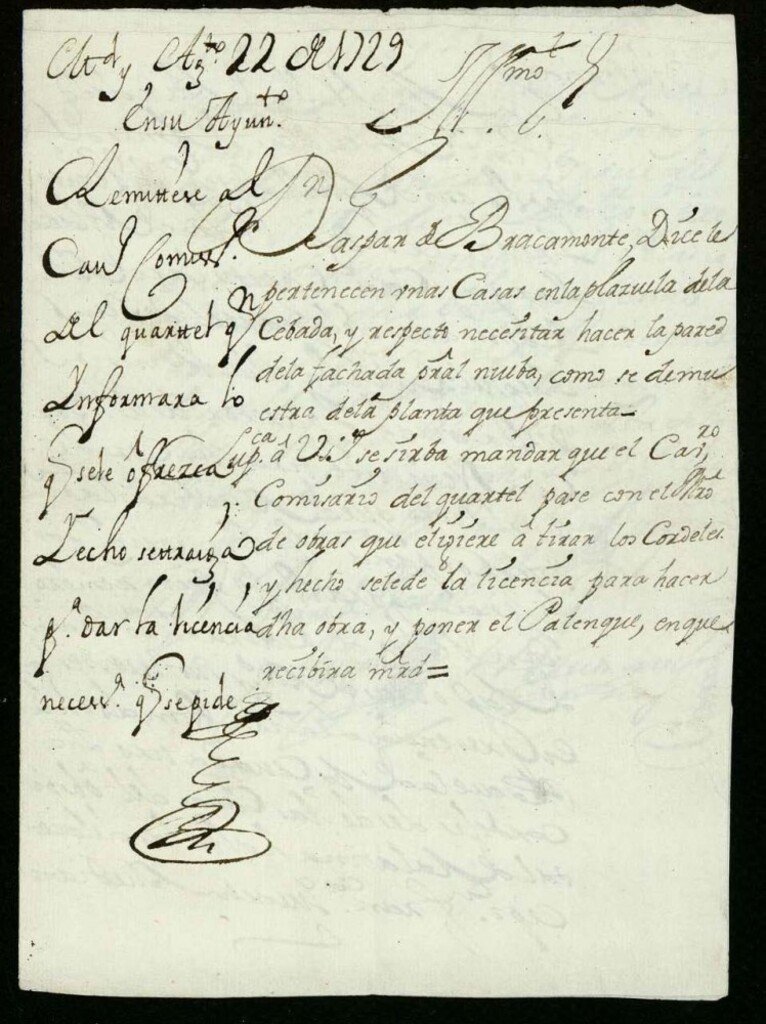 Md. y Agto. 22 de 1729
En su Ayunto.
Remittese al
Cavo. Comisso.
del quartel qn.
Informara lo
q. se le ofrezca
y
hecho se traiga
pa. dar la licencia
necessa. q. se pide
Illmo. Sr.
Dn. Gaspar de Bracamonte, Dice le
pertenecen vnas Casas en la plazuela de la
Cebada, y respecto necesitar hacer la pared
de la fachada pral nueba, como se demu
estra de la planta que presenta
Supca. a V.I. se sirba mandar que el Cavro.
Comisario del quartel pase con el Mro
de obras que elijiere â tirar los Cordeles
y hecho se le de la licencia para hacer
dha obra, y poner el Palenque, en que
recibira mrd=